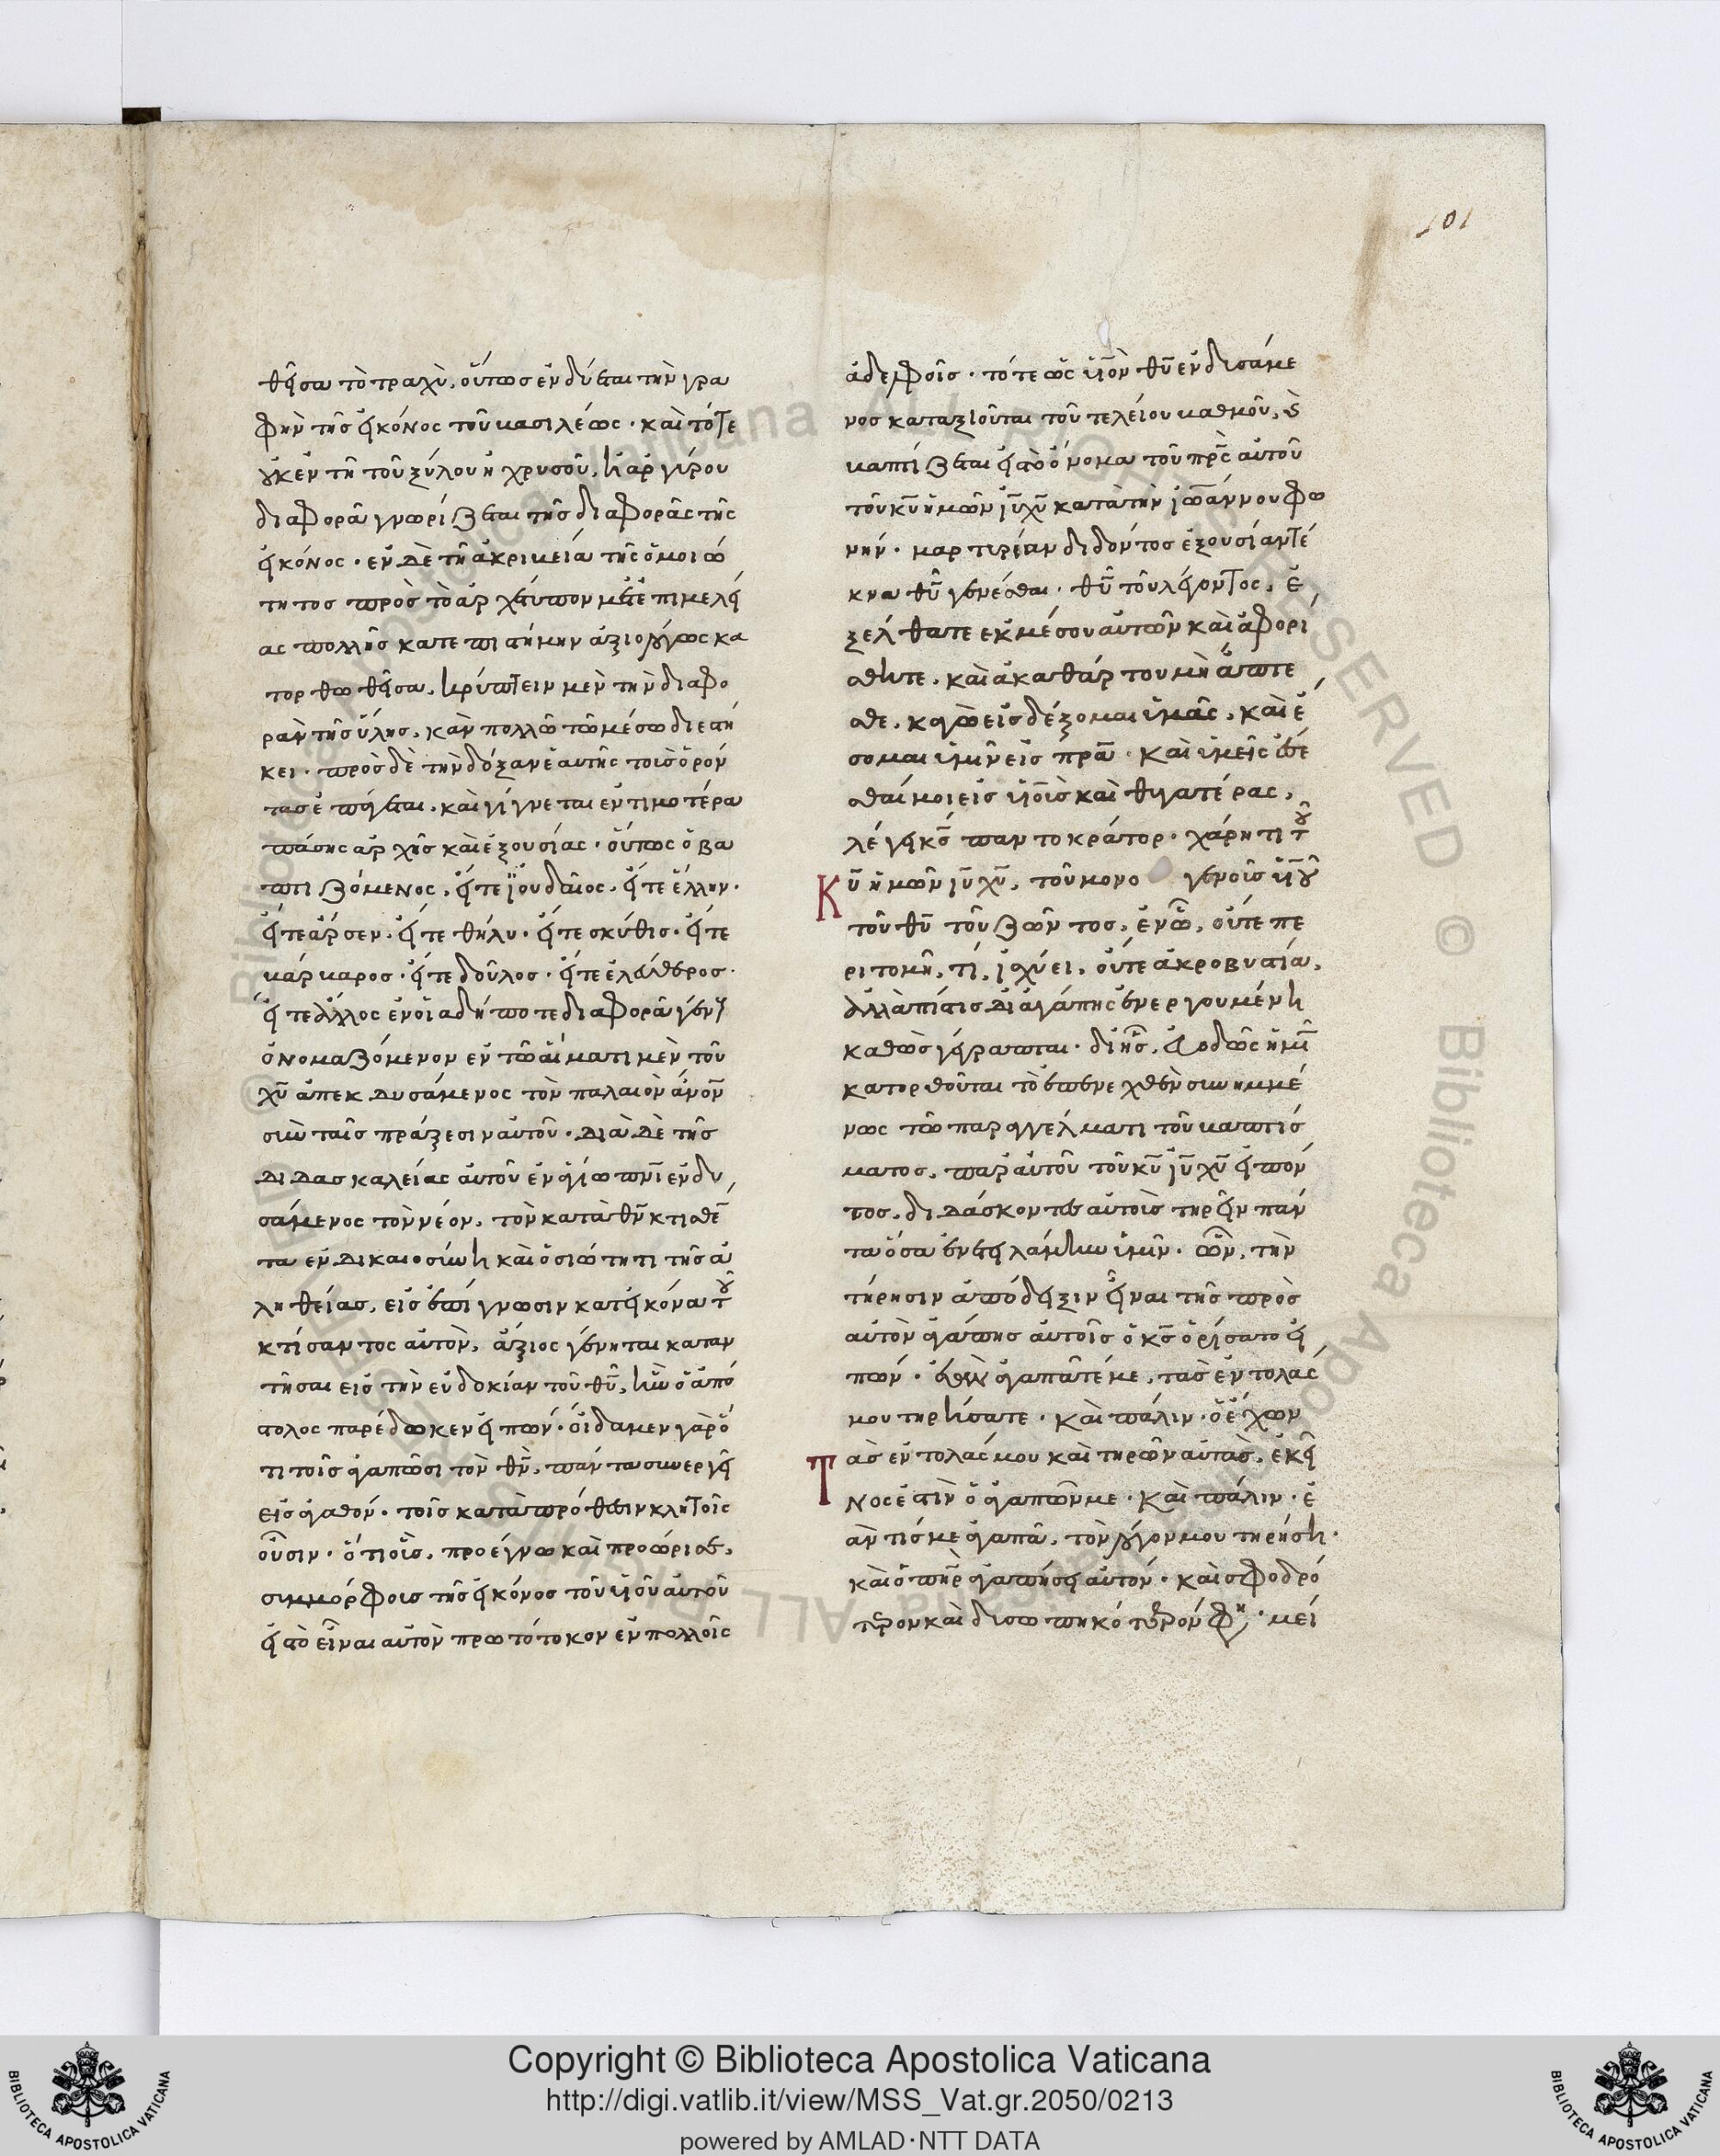 101
θεῖσα τὸ τραχὺ, οὕτως ἐνδύεται τὴν γρα
φὴν τῆς εἰκόνος τοῦ βασιλέως · καὶ τότε
οὐκ ἐν τῆ τοῦ ξύλου ἢ χρυσοῦ, ἢ ἀργύρου
διαφορᾶ γνωρίζεται τῆς διαφορᾶς τῆς
εἰκόνος · ἐν δὲ τῆ ἀκριβεία τῆς ὁμοιό
τητος πρὸς τὸ ἀρχέτυπον μετ ἐπιμελεί
ας πολλῆς κατεπιστήμην ἀξιολόγως κα
τορθωθεῖσα, κρύπτειν μὲν τὴν διαφο
ρὰν τῆς ὕλης, κἂν πολλῶ τῶ μέσω διεστή
κει · πρὸς δὲ τὴν δόξαν ἑαυτῆς τοὺς ὁρῶν
τας ἐπάγεται, καὶ γίγνεται ἐντιμοτέρα
πάσης ἀρχῆς καὶ ἐξουσίας · οὕτως ὁ βα
πτιζόμενος, εἴτε ἰουδαῖος, εἴτε ἕλλην ·
εἴτε ἄρσεν · εἴτε θῆλυ · εἴτε σκύθης · εἴτε
βάρβαρος · εἴτε δοῦλος · εἴτε ἐλεύθερος ·
εἴτε ἄλλος ἐν οἱαδήποτε διαφορᾶ γένους
ὀνομαζόμενον ἐν τῶ αἵματι μὲν τοῦ
χῦ ἀπεκδυσάμενος τὸν παλαιὸν ἄνον
σὺν ταῖς πράξεσιν αὐτοῦ · διὰ δὲ τῆς
διδασκαλείας αὐτοῦ ἐν ἁγίω πνι ἐνδυ
σάμενος τὸν νέον, τὸν κατὰ θν κτισθέν
τα ἐν δικαιοσύνη καὶ ὁσιότητι τῆς ἀ
ληθείας, εἰς ἐπίγνωσιν κατ εἰκόνα τοῦ
κτίσαντος αὐτὸν, ἄξιος γένηται καταν
τῆσαι εἰς τὴν εὐδοκίαν τοῦ θυ, ἣν ὁ ἀπό
στολος παρέδωκεν εἰπών · οἴδαμεν γὰρ ὅ
τι τοῖς ἀγαπῶσι τὸν θν, πάντα συνεργεῖ
εἰς ἀγαθόν · τοῖς κατὰ πρόθεσιν κλητοῖς
οὖσιν · ὅτι οὓς, προέγνω καὶ προώρισεν,
συμμόρφους τῆς εἰκόνος τοῦ υἱοῦ αὐτοῦ
εἰς τὸ εἶναι αὐτὸν πρωτότοκον ἐν πολλοῖς
ἀδελφοῖς · τότε ὡς υἱὸν θυ ἐνδυσάμε
νος καταξιοῦται τοῦ τελείου βαθμοῦ, καὶ
βαπτίζεται εἰς τὸ ὄνομα τοῦ πρς αὐτοῦ
τοῦ κυ ἡμῶν ιυ χυ κατὰ τὴν ἰωάννου φω
νήν · μαρτυρίαν διδόντος ἐξουσίαν τέ
κνα θυ γενέσθαι · θυ τοῦ λέγοντος, ἐ
ξέλθατε ἐκ μέσου αὐτῶν καὶ ἀφορί
σθητε, καὶ ἀκαθάρτου μὴ ἅπτε
σθε, κἀγὼ εἰσδέξομαι ὑμᾶς, καὶ ἔ
σομαι ὑμῖν εἰς πρα · καὶ ὑμεῖς ἔσε
σθαί μοι εἰς υἱοὺς καὶ θυγατέρας,
λέγει κς παντοκράτορ · χάριτι τοῦ
κυ ἡμῶν ιυ χυ, τοῦ μονογενοῦς υἱοῦ
τοῦ θυ τοῦ ζῶντος, ἐν ῶ, οὔτε πε
ριτομή, τί, ἰσχύει, οὔτε ἀκροβυστία,
ἀλλὰ πίστις δι ἀγάπης ἐνεργουμένη
καθὼς γέγραπται · δι ἧς, εὐοδῶς ἡμῖν
κατορθοῦται τὸ ἐπενεχθὲν συνημμέ
νως τῶ παραγγέλματι τοῦ βαπτίσ
ματος, παρ αὐτοῦ τοῦ κυ ιυ χυ εἰπόν
τος, διδάσκοντες αὐτοὺς τηρεῖν πάν
τα ὅσα ἐνετειλάμην ὑμῖν · ὧν, τὴν
τήρησιν ἀπόδειξιν εἶναι τῆς πρὸς
αὐτὸν ἀγάπης αὐτοῖς ὁ κς ὁρίσατο εἰ
πών · ἐὰν ἀγαπᾶτέ με, τὰς ἐντολάς
μου τηρήσατε · καὶ πάλιν · ὁ ἔχων
τὰς ἐντολάς μου καὶ τηρῶν αὐτὰς, ἐκεῖ
νός ἐστὶν ὁ ἀγαπῶν με · καὶ πάλιν · ἐ
άν τίς με ἀγαπᾶ, τὸν λόγον μου τηρήση ·
καὶ ὁ πηρ ἀγαπήσει αὐτόν · καὶ σφοδρό
τερον καὶ δυσωπηκότερόν φη · μεί
Copyright © Biblioteca Apostolica Vaticana
http://digi.vatlib.it/view/MSS_Vat.gr.2050/0213
powered by AMLAD·NTT DATA